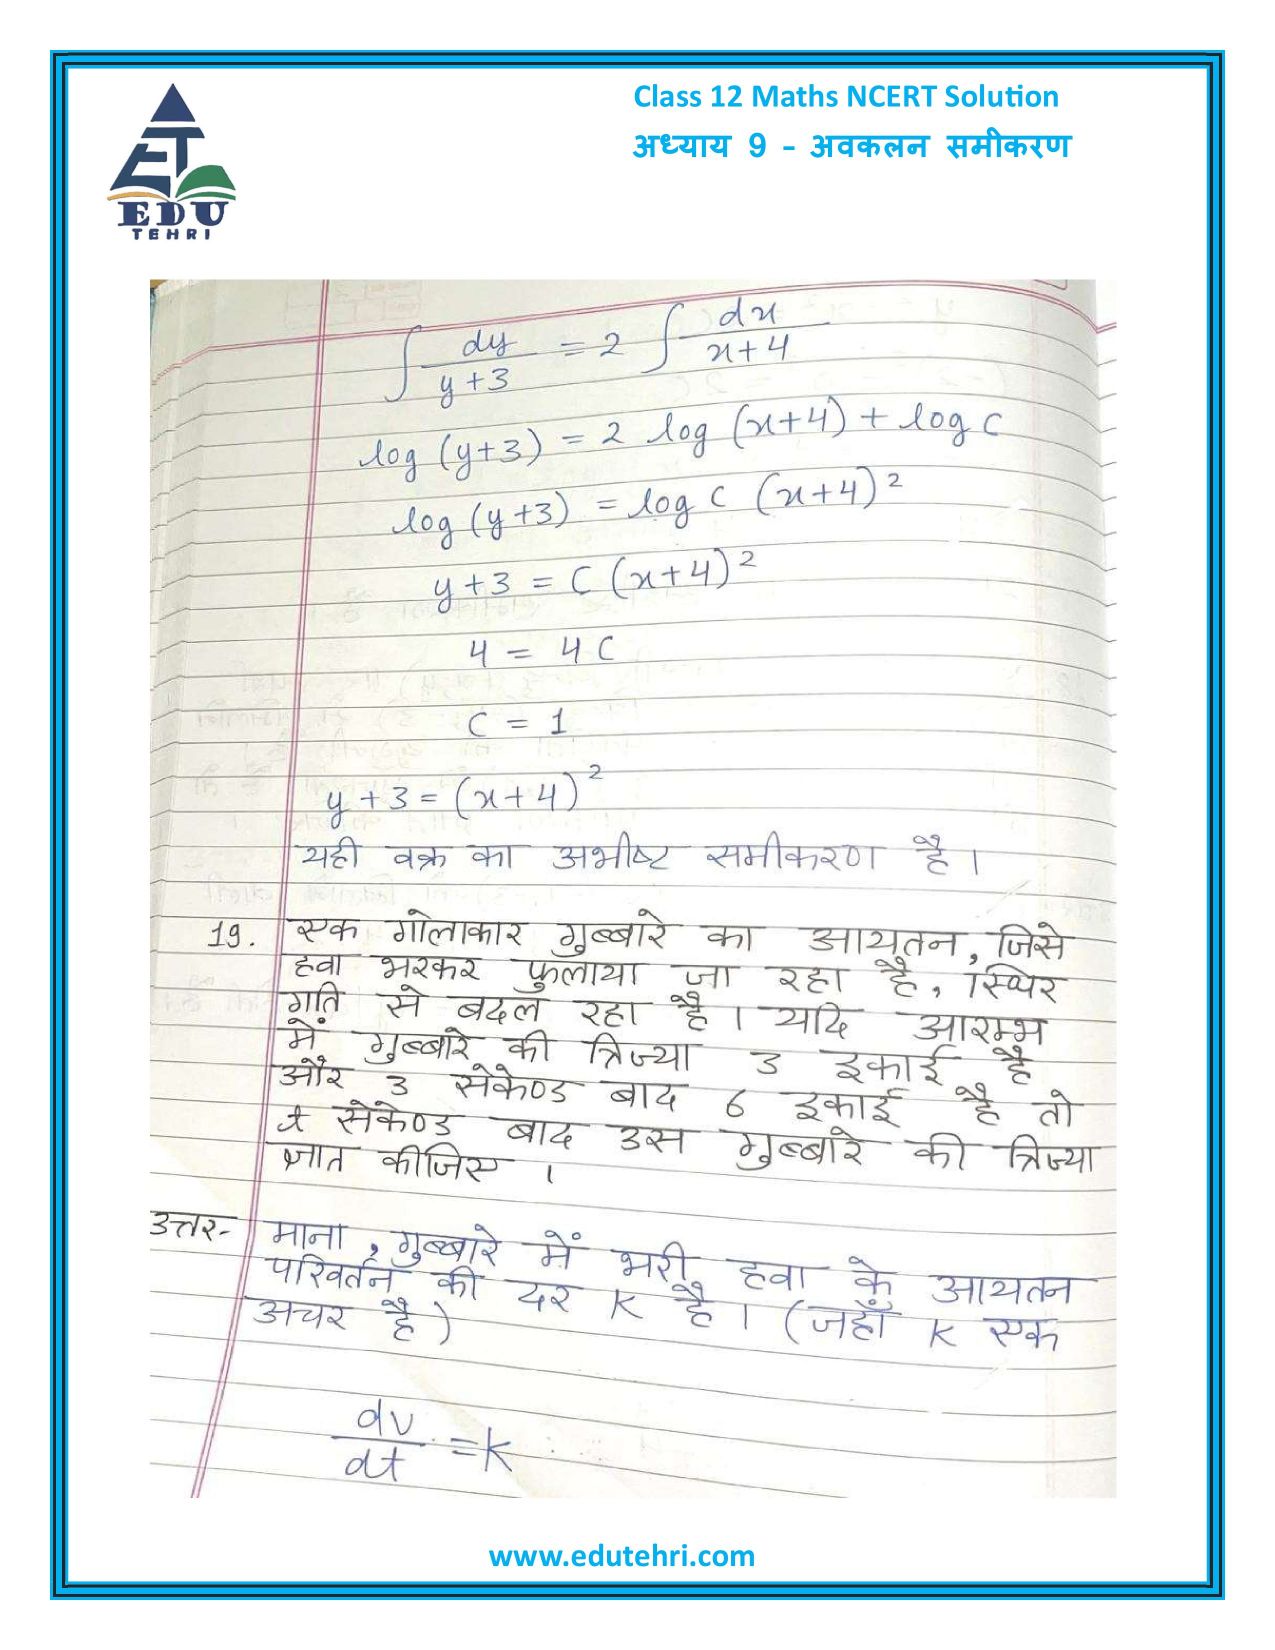 Class 12 Maths NCERT Solution
अध्याय 9 – अवकलन समीकरण
EDU
TEHRI
∫ dy/(y+3) = 2 ∫ dx/(x+4)
log (y+3) = 2 log (x+4) + log C
log (y+3) = log C (x+4)²
y+3 = C (x+4)²
4 = 4C
C = 1
y+3 = (x+4)²
यही वक्र का अभीष्ट समीकरण है।
19. एक गोलाकार गुब्बारे का आयतन, जिसे
हवा भरकर फुलाया जा रहा है, स्थिर
गति से बदल रहा है। यदि आरम्भ
में गुब्बारे की त्रिज्या 3 इकाई है
और 3 सेकेण्ड बाद 6 इकाई है तो
t सेकेण्ड बाद उस गुब्बारे की त्रिज्या
ज्ञात कीजिए ।
उत्तर- माना, गुब्बारे में भरी हवा के आयतन
परिवर्तन की दर K है। (जहाँ K एक
अचर है)
dv/dt = K
www.edutehri.com